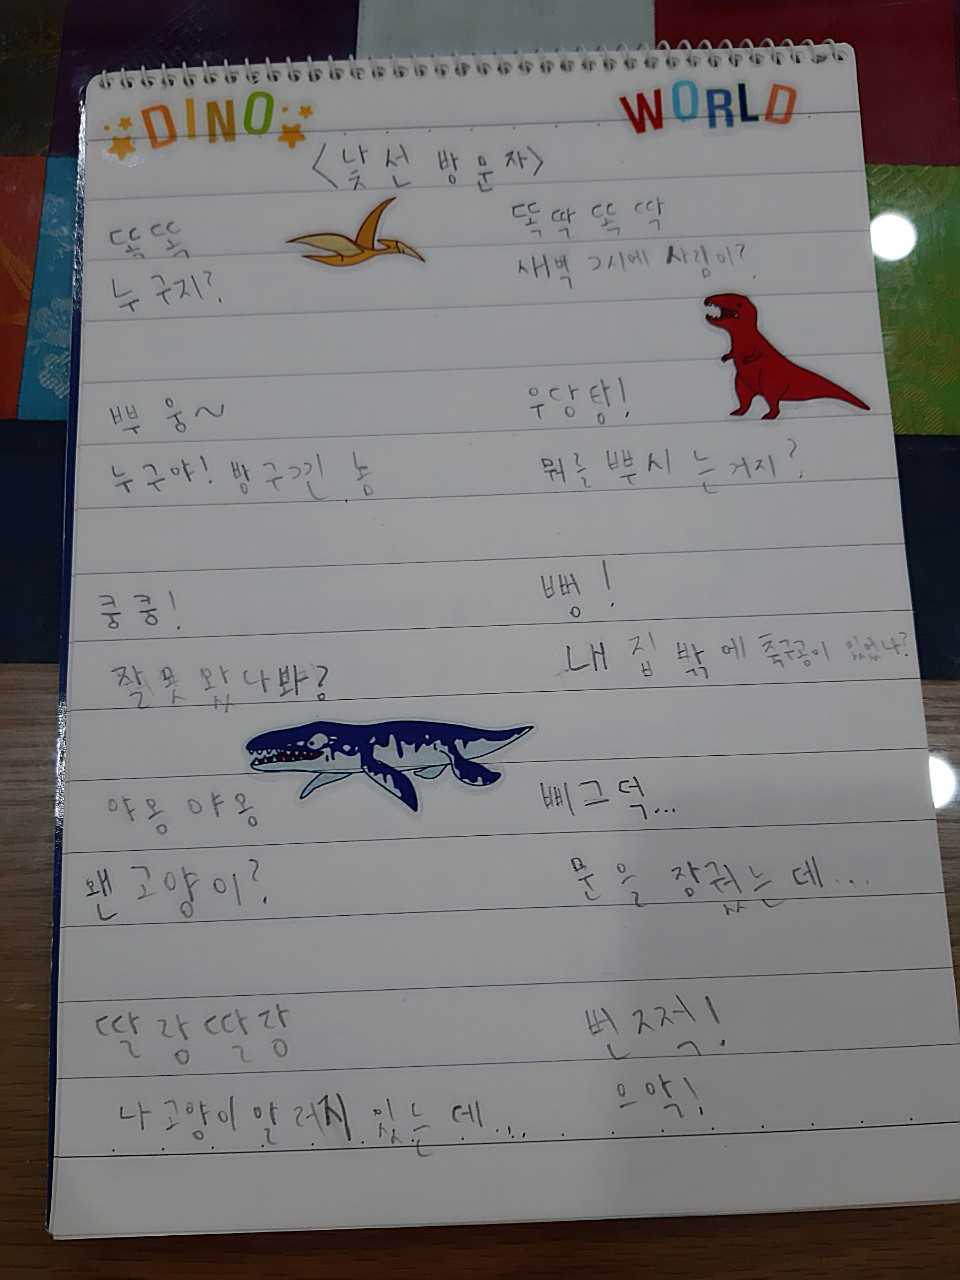 DINO WORLD
<낯선 방문자>
똑똑
누구지?
뿌웅~
누구야! 방구낀 놈
쿵쿵!
잘못 왔나봐?
야옹 야옹
왠 고양이?
딸랑딸랑
나 고양이 알러지 있는데...
똑딱 똑딱
새벽 2시에 사람이?
우당탕!
뭐를 뿌시는거지?
뻥!
내 집 밖에 축구공이 있었나?
삐그덕...
문을 장궜는데...
번쩍!
으악!